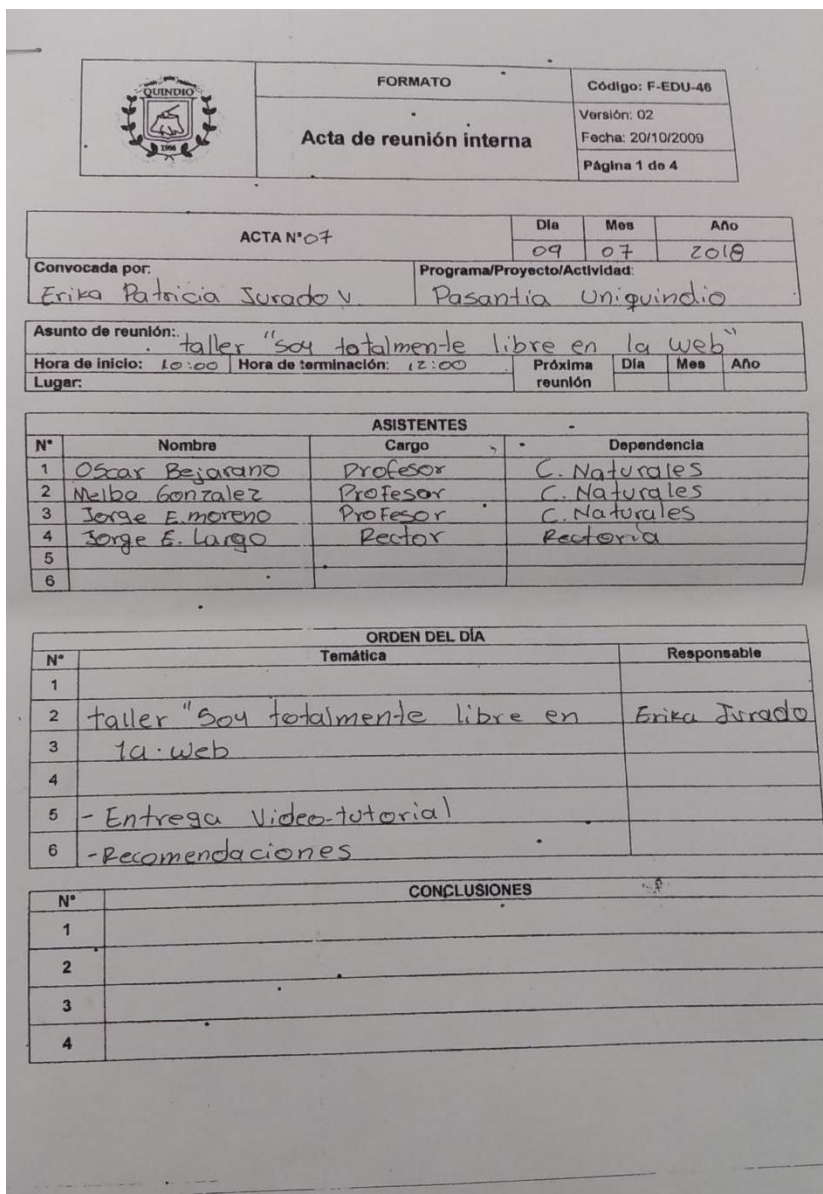 QUINDIO
1966
FORMATO
Acta de reunión interna
Código: F-EDU-46
Versión: 02
Fecha: 20/10/2009
Página 1 de 4
ACTA N° 07
Día Mes Año
09 07 2018
Convocada por: Programa/Proyecto/Actividad:
Erika Patricia Jurado V. Pasantía Uniquindio
Asunto de reunión: taller "Soy totalmente libre en la web"
Hora de inicio: 10:00 Hora de terminación: 12:00 Próxima reunión Día Mes Año
Lugar:
ASISTENTES
N° Nombre Cargo Dependencia
1 Oscar Bejarano Profesor C. Naturales
2 Melba Gonzalez Profesor C. Naturales
3 Jorge E. moreno Profesor C. Naturales
4 Jorge E. Largo Rector Rectoria
5
6
ORDEN DEL DÍA
N° Temática Responsable
1
2 taller "Soy totalmente libre en Erika Jurado
3 la web
4
5 - Entrega Video-tutorial
6 - Recomendaciones
N° CONCLUSIONES
1
2
3
4